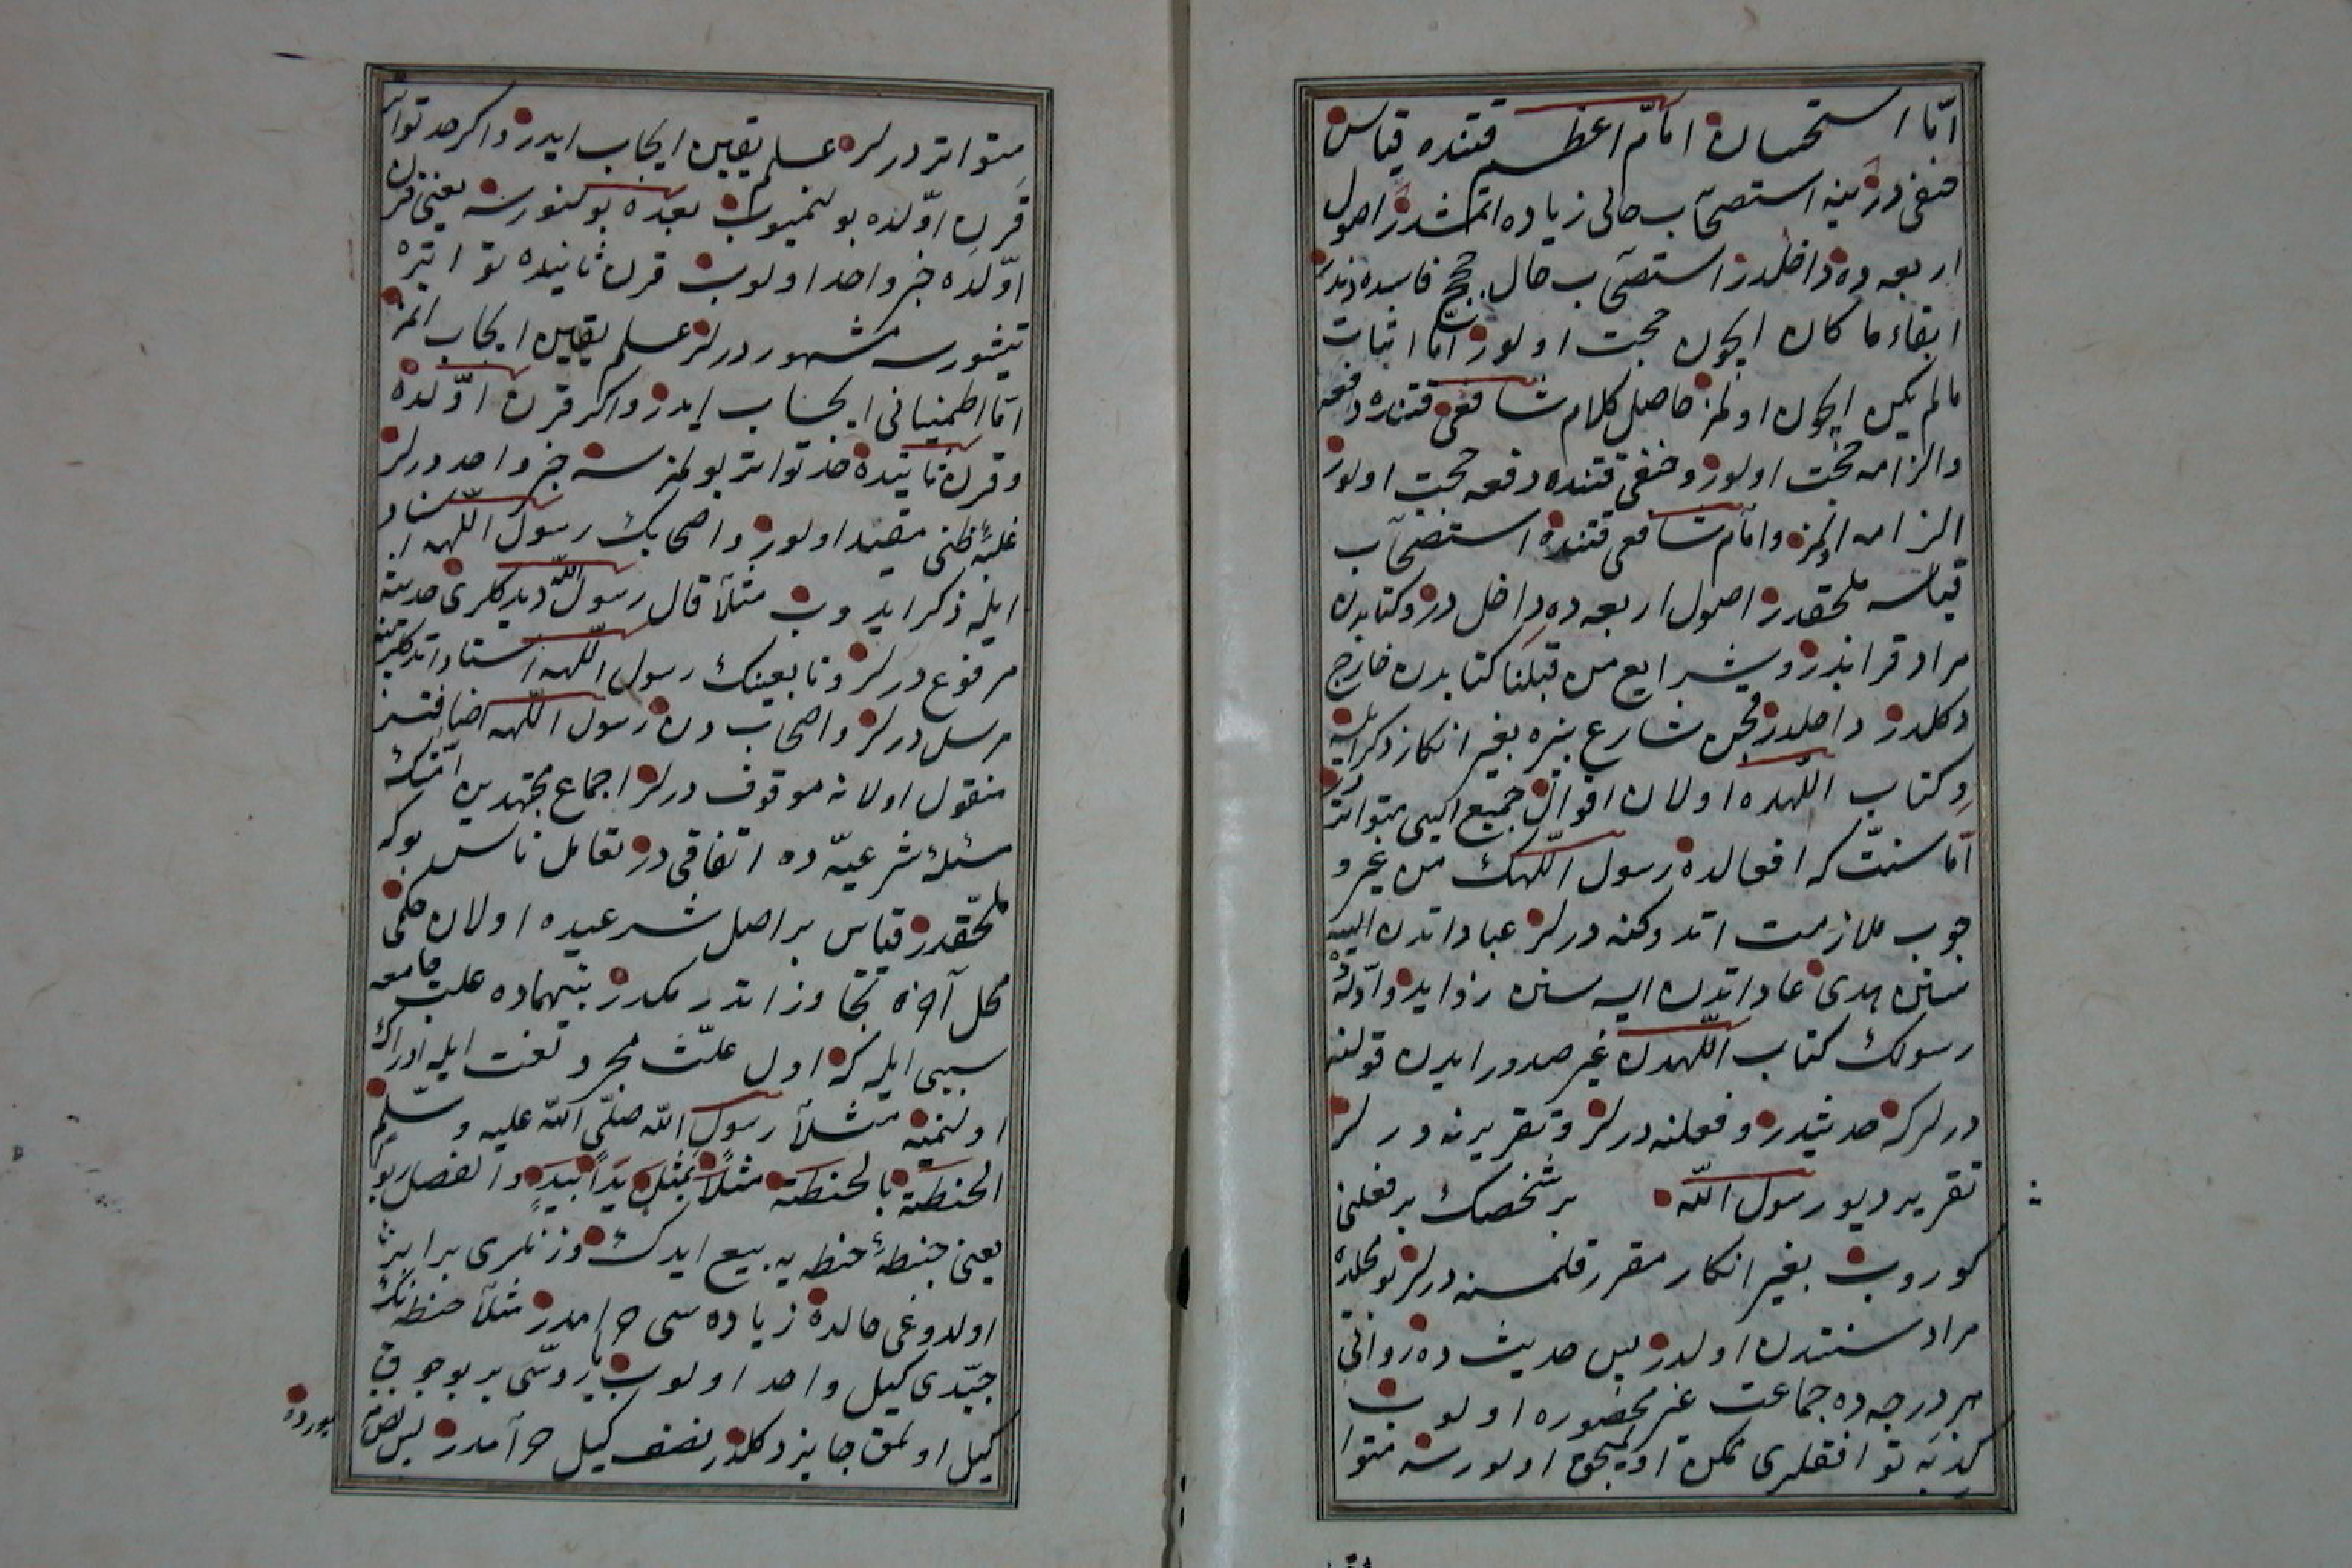 امّا استحسان امام اعظم قتنده قیاس
خفی در ینه استصحاب حالی زیاده اتمشدر اصول
اربعه ده داخلدر استصحاب حال حجج فاسده دندر
ابقاء ما کان ایچون حجت اولور امّا اثبات
مالم یکن ایچون اولمز حاصل کلام شافعی قتنده دفعه
والزامه حجت اولور وحنفی قتنده دفعه حجت اولور
الزامه اولمز وامام شافعی قتنده استصحاب
قیاسه ملحقدر اصول اربعه ده داخل در وکتابدن
مراد قراندر وشرایع من قبلنا کتابدن خارج
دکلدر داخلدر شارع بزه بغیر انکار ذکر ایله
وکتاب اللهده اولان اقوال جمیع ایسی متواتر در
امّا سنّت که افعالده رسول اللهک من غیر و
جوب ملازمت اتدوکنه درلر عباداتدن ایسه
سنن هدی عاداتدن ایسه سنن زواید وادله ده
رسولک کتاب اللهدن غیر صدور ایدن قولنه
درلرکه حدیثدر وفعلنه درلر وتقریرنه درلر
تقریر دیو رسول الله بر شخصک بر فعلنی
کوروب بغیر انکار مقرر قلمسنه درلر بو محلده
مراد سنتدن اولدر پس حدیث ده رواتی
هر درجه ده جماعت غیر محصوره اولوب
کذبه توافقلری ممکن اولمیجق اولورسه متوا
متواتر درلر علم یقین ایجاب ایدر واکر حد تواتر
قرن اوّلده بولنمیوب بعده بولنورسه یعنی قرن
اوّلده خبر واحد اولوب قرن ثانیده تواتره
یتشورسه مشهور درلر علم یقین ایجاب اتمز
امّا اطمینانی ایجاب ایدر واکر قرن اوّلده
وقرن ثانیده حد تواتر بولمزسه خبر واحد درلر
غلبهٔ ظنی مفید اولور واصحابک رسول اللهه اسناد
ایله ذکر ایدوب مثلا قال رسول الله دیدکلری حدیثه
مرفوع درلر وتابعینک رسول اللهه اسناد اتدکلرینه
مرسل درلر واصحاب دن رسول اللهه اضافتسز
منقول اولانه موقوف درلر اجماع مجتهدین امّتک
مسئلهٔ شرعیّه ده اتفاقی در تعامل ناس بوکه
ملحقدر قیاس بر اصل شرعیده اولان حکمی
محل آخره تجاوز اتدرمکدر بینهماده علت جامعه
سببی ایله که اول علّت مجرد لغت ایله ادراک
اولنمیه مثلا رسول الله صلّی الله علیه وسلّم
الحنطة بالحنطة مثلاً بمثل یداً بیدٍ والفضل ربو
یعنی حنطهٔ حنطه یه بیع ایدک وزنلری برابر
اولدوغی حالده زیاده سی حرامدر مثلا حنطه نک
جیّدی کیل واحد اولوب یاروسّی بر بوجوق
کیل اولمق جایز دکلدر نصف کیل حرآمدر پس نص
بیورده